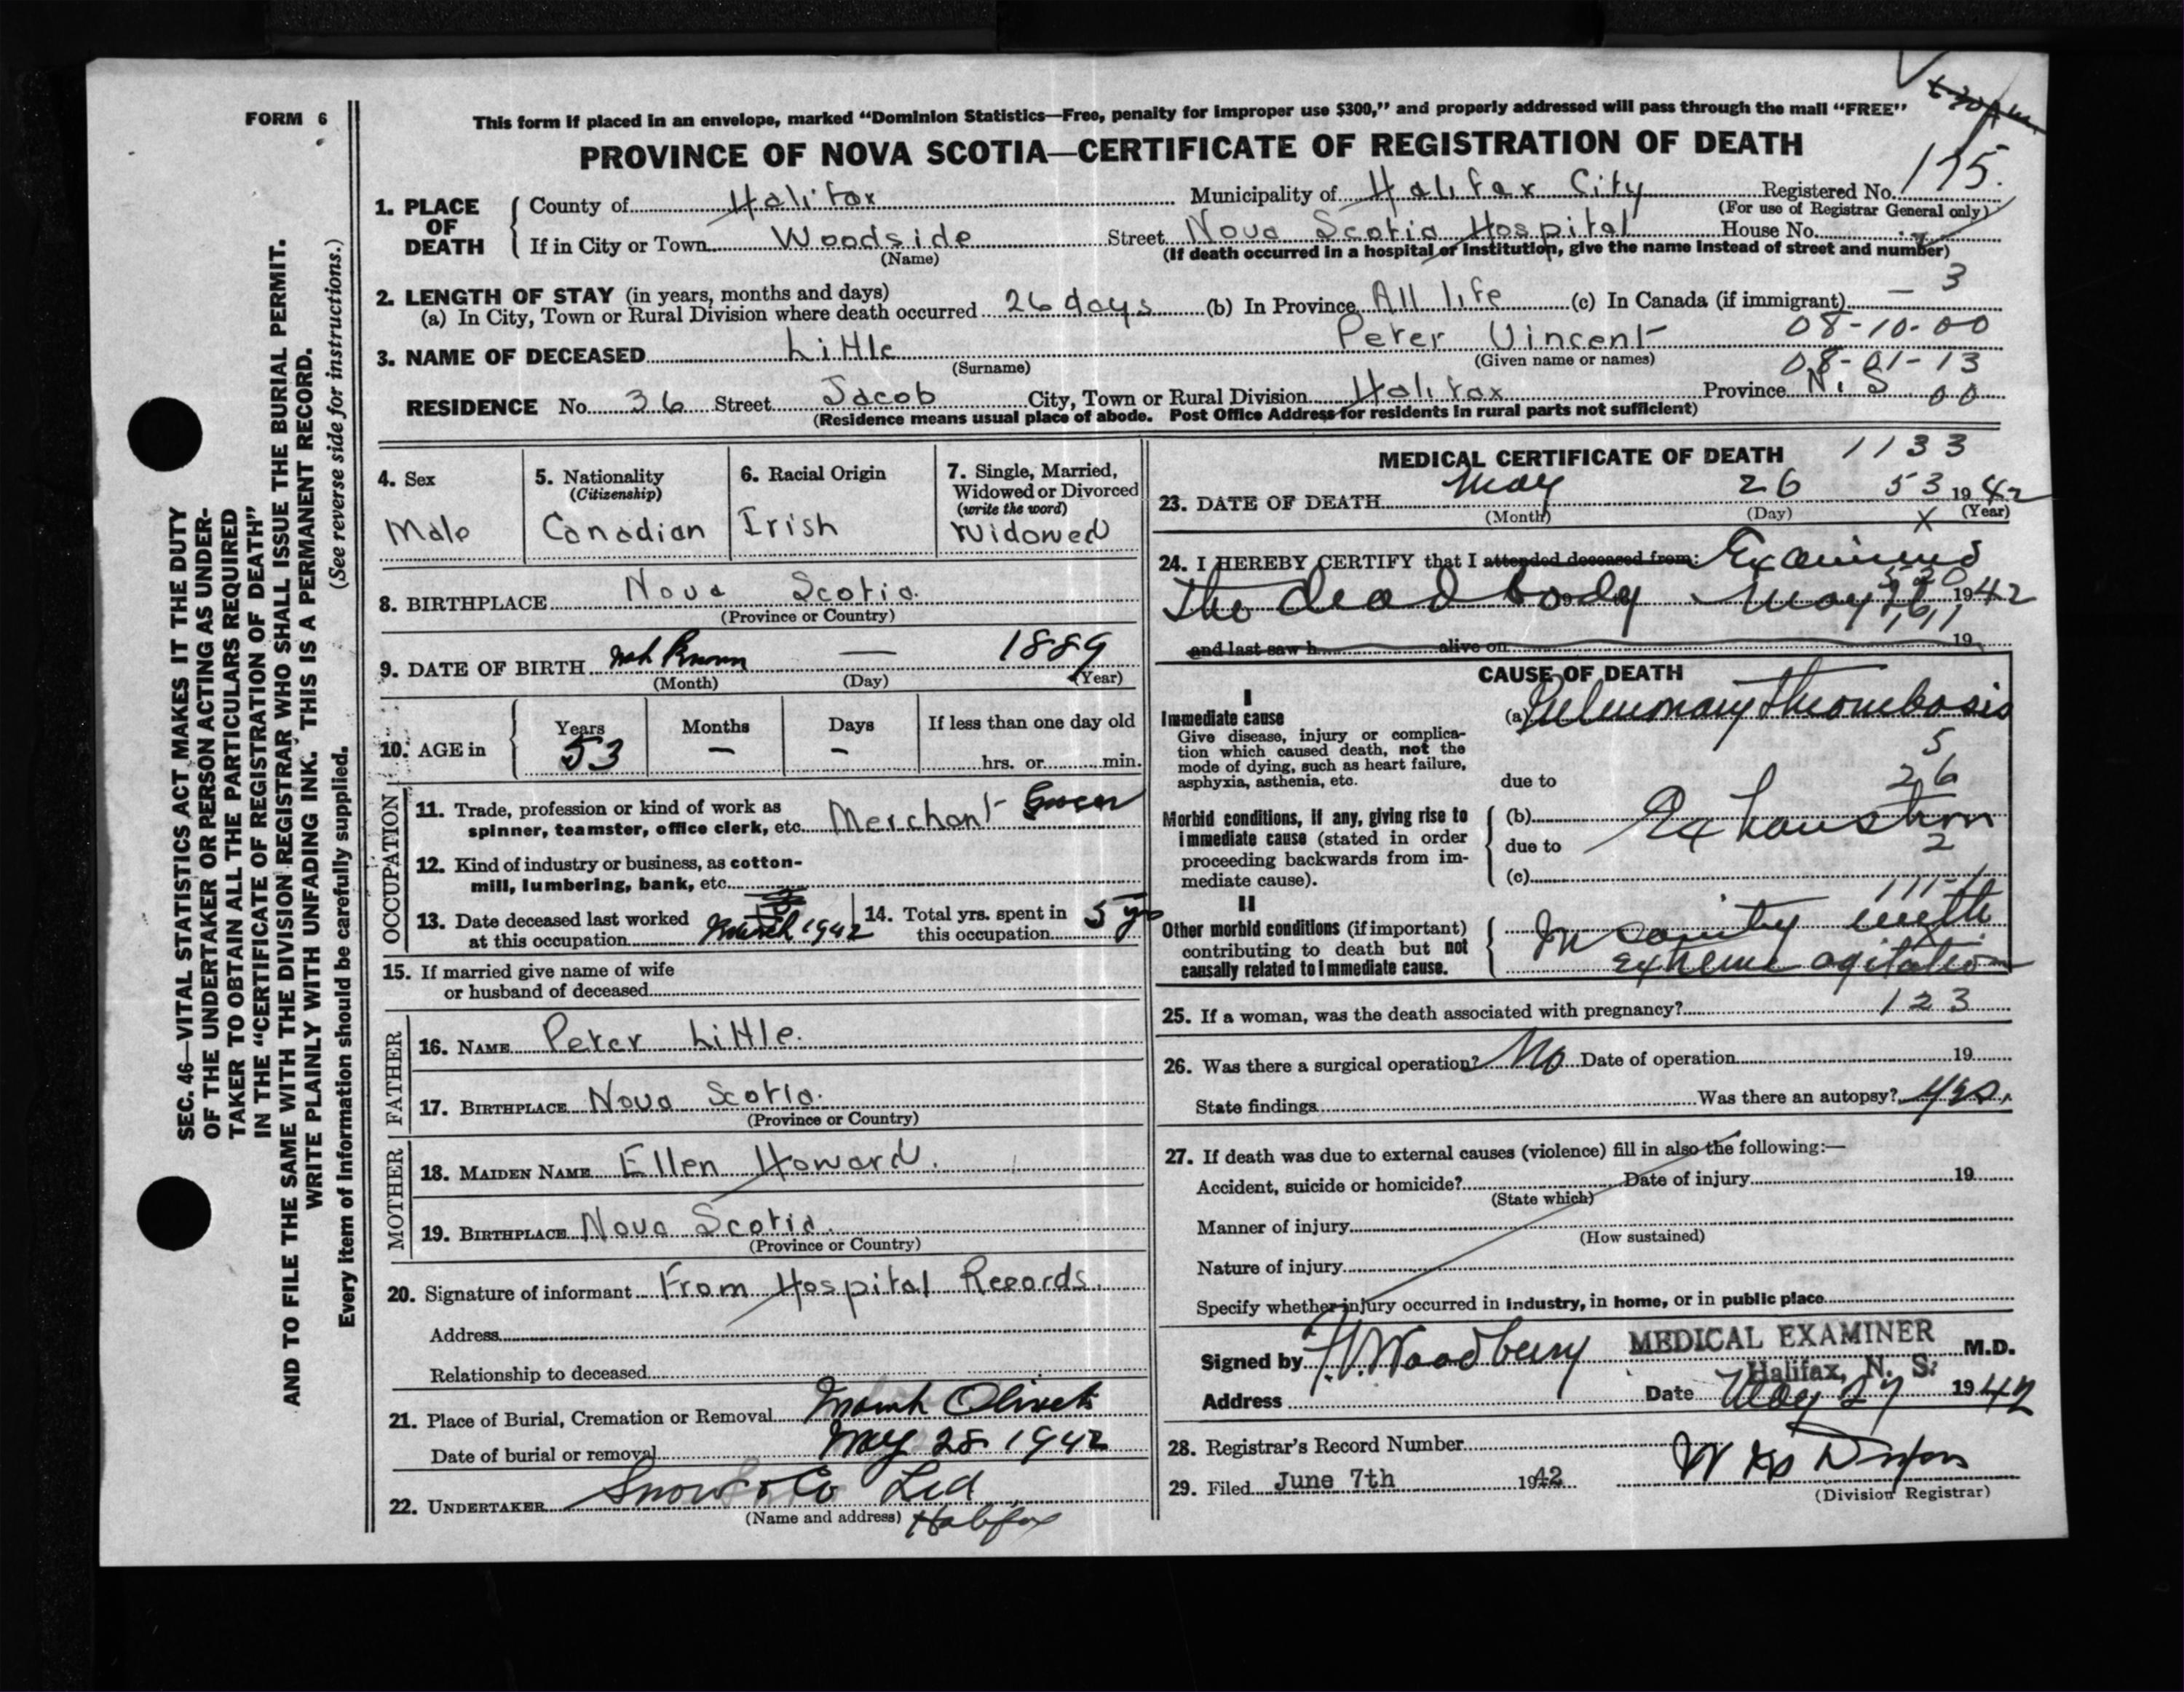 FORM 6
This form if placed in an envelope, marked “Dominion Statistics—Free, penalty for improper use $300,” and properly addressed will pass through the mail “FREE”
PROVINCE OF NOVA SCOTIA—CERTIFICATE OF REGISTRATION OF DEATH
1. PLACE OF DEATH
County of Halifax Municipality of Halifax City Registered No. 175.
(For use of Registrar General only)
If in City or Town Woodside Street Nova Scotia Hospital House No.
(Name) (If death occurred in a hospital or institution, give the name instead of street and number)
2. LENGTH OF STAY (in years, months and days) 3
(a) In City, Town or Rural Division where death occurred 26 days (b) In Province All life (c) In Canada (if immigrant) —
08-10-00
3. NAME OF DECEASED Little Peter Vincent
(Surname) (Given name or names) 08-01-13
RESIDENCE No. 36 Street Jacob City, Town or Rural Division Halifax Province N.S. 00
(Residence means usual place of abode. Post Office Address for residents in rural parts not sufficient)
4. Sex
Male
5. Nationality
(Citizenship)
Canadian
6. Racial Origin
Irish
7. Single, Married,
Widowed or Divorced
(write the word)
Widowed
8. BIRTHPLACE Nova Scotia.
(Province or Country)
9. DATE OF BIRTH not known — 1889
(Month) (Day) (Year)
10. AGE in
Years Months Days If less than one day old
53 — — hrs. or min.
OCCUPATION
11. Trade, profession or kind of work as
spinner, teamster, office clerk, etc. Merchant Grocer
12. Kind of industry or business, as cotton-
mill, lumbering, bank, etc.
13. Date deceased last worked
at this occupation March 1942
14. Total yrs. spent in
this occupation 5 yrs
15. If married give name of wife
or husband of deceased
FATHER
16. NAME Peter Little.
17. BIRTHPLACE Nova Scotia.
(Province or Country)
MOTHER
18. MAIDEN NAME Ellen Howard.
19. BIRTHPLACE Nova Scotia.
(Province or Country)
20. Signature of informant From Hospital Records.
Address
Relationship to deceased
21. Place of Burial, Cremation or Removal Mount Olivet
Date of burial or removal May 28 1942
22. UNDERTAKER Snow & Co Ltd
(Name and address) Halifax
MEDICAL CERTIFICATE OF DEATH 1133
23. DATE OF DEATH May 26 53 1942
(Month) (Day) (Year)
X
24. I HEREBY CERTIFY that I attended deceased from: Examined
the dead body May 26 1942
and last saw h alive on 19
CAUSE OF DEATH
I
Immediate cause
Give disease, injury or complica-
tion which caused death, not the
mode of dying, such as heart failure,
asphyxia, asthenia, etc.
(a) Pulmonary Thrombosis
5
due to
26
Morbid conditions, if any, giving rise to
immediate cause (stated in order
proceeding backwards from im-
mediate cause).
(b) Exhaustion
due to
2
(c)
II
Other morbid conditions (if important)
contributing to death but not
causally related to immediate cause.
Insanity with
extreme agitation
25. If a woman, was the death associated with pregnancy? 123
26. Was there a surgical operation? No Date of operation 19
State findings Was there an autopsy? yes.
27. If death was due to external causes (violence) fill in also the following:—
Accident, suicide or homicide? Date of injury 19
(State which)
Manner of injury
(How sustained)
Nature of injury
Specify whether injury occurred in industry, in home, or in public place
Signed by Woodbury MEDICAL EXAMINER M.D.
Halifax, N. S.
Address Date May 27 1942
28. Registrar's Record Number
29. Filed June 7th 1942
(Division Registrar)
SEC. 46—VITAL STATISTICS ACT MAKES IT THE DUTY
OF THE UNDERTAKER OR PERSON ACTING AS UNDER-
TAKER TO OBTAIN ALL THE PARTICULARS REQUIRED
IN THE “CERTIFICATE OF REGISTRATION OF DEATH”
AND TO FILE THE SAME WITH THE DIVISION REGISTRAR WHO SHALL ISSUE THE BURIAL PERMIT.
WRITE PLAINLY WITH UNFADING INK. THIS IS A PERMANENT RECORD.
Every item of information should be carefully supplied. (See reverse side for instructions.)